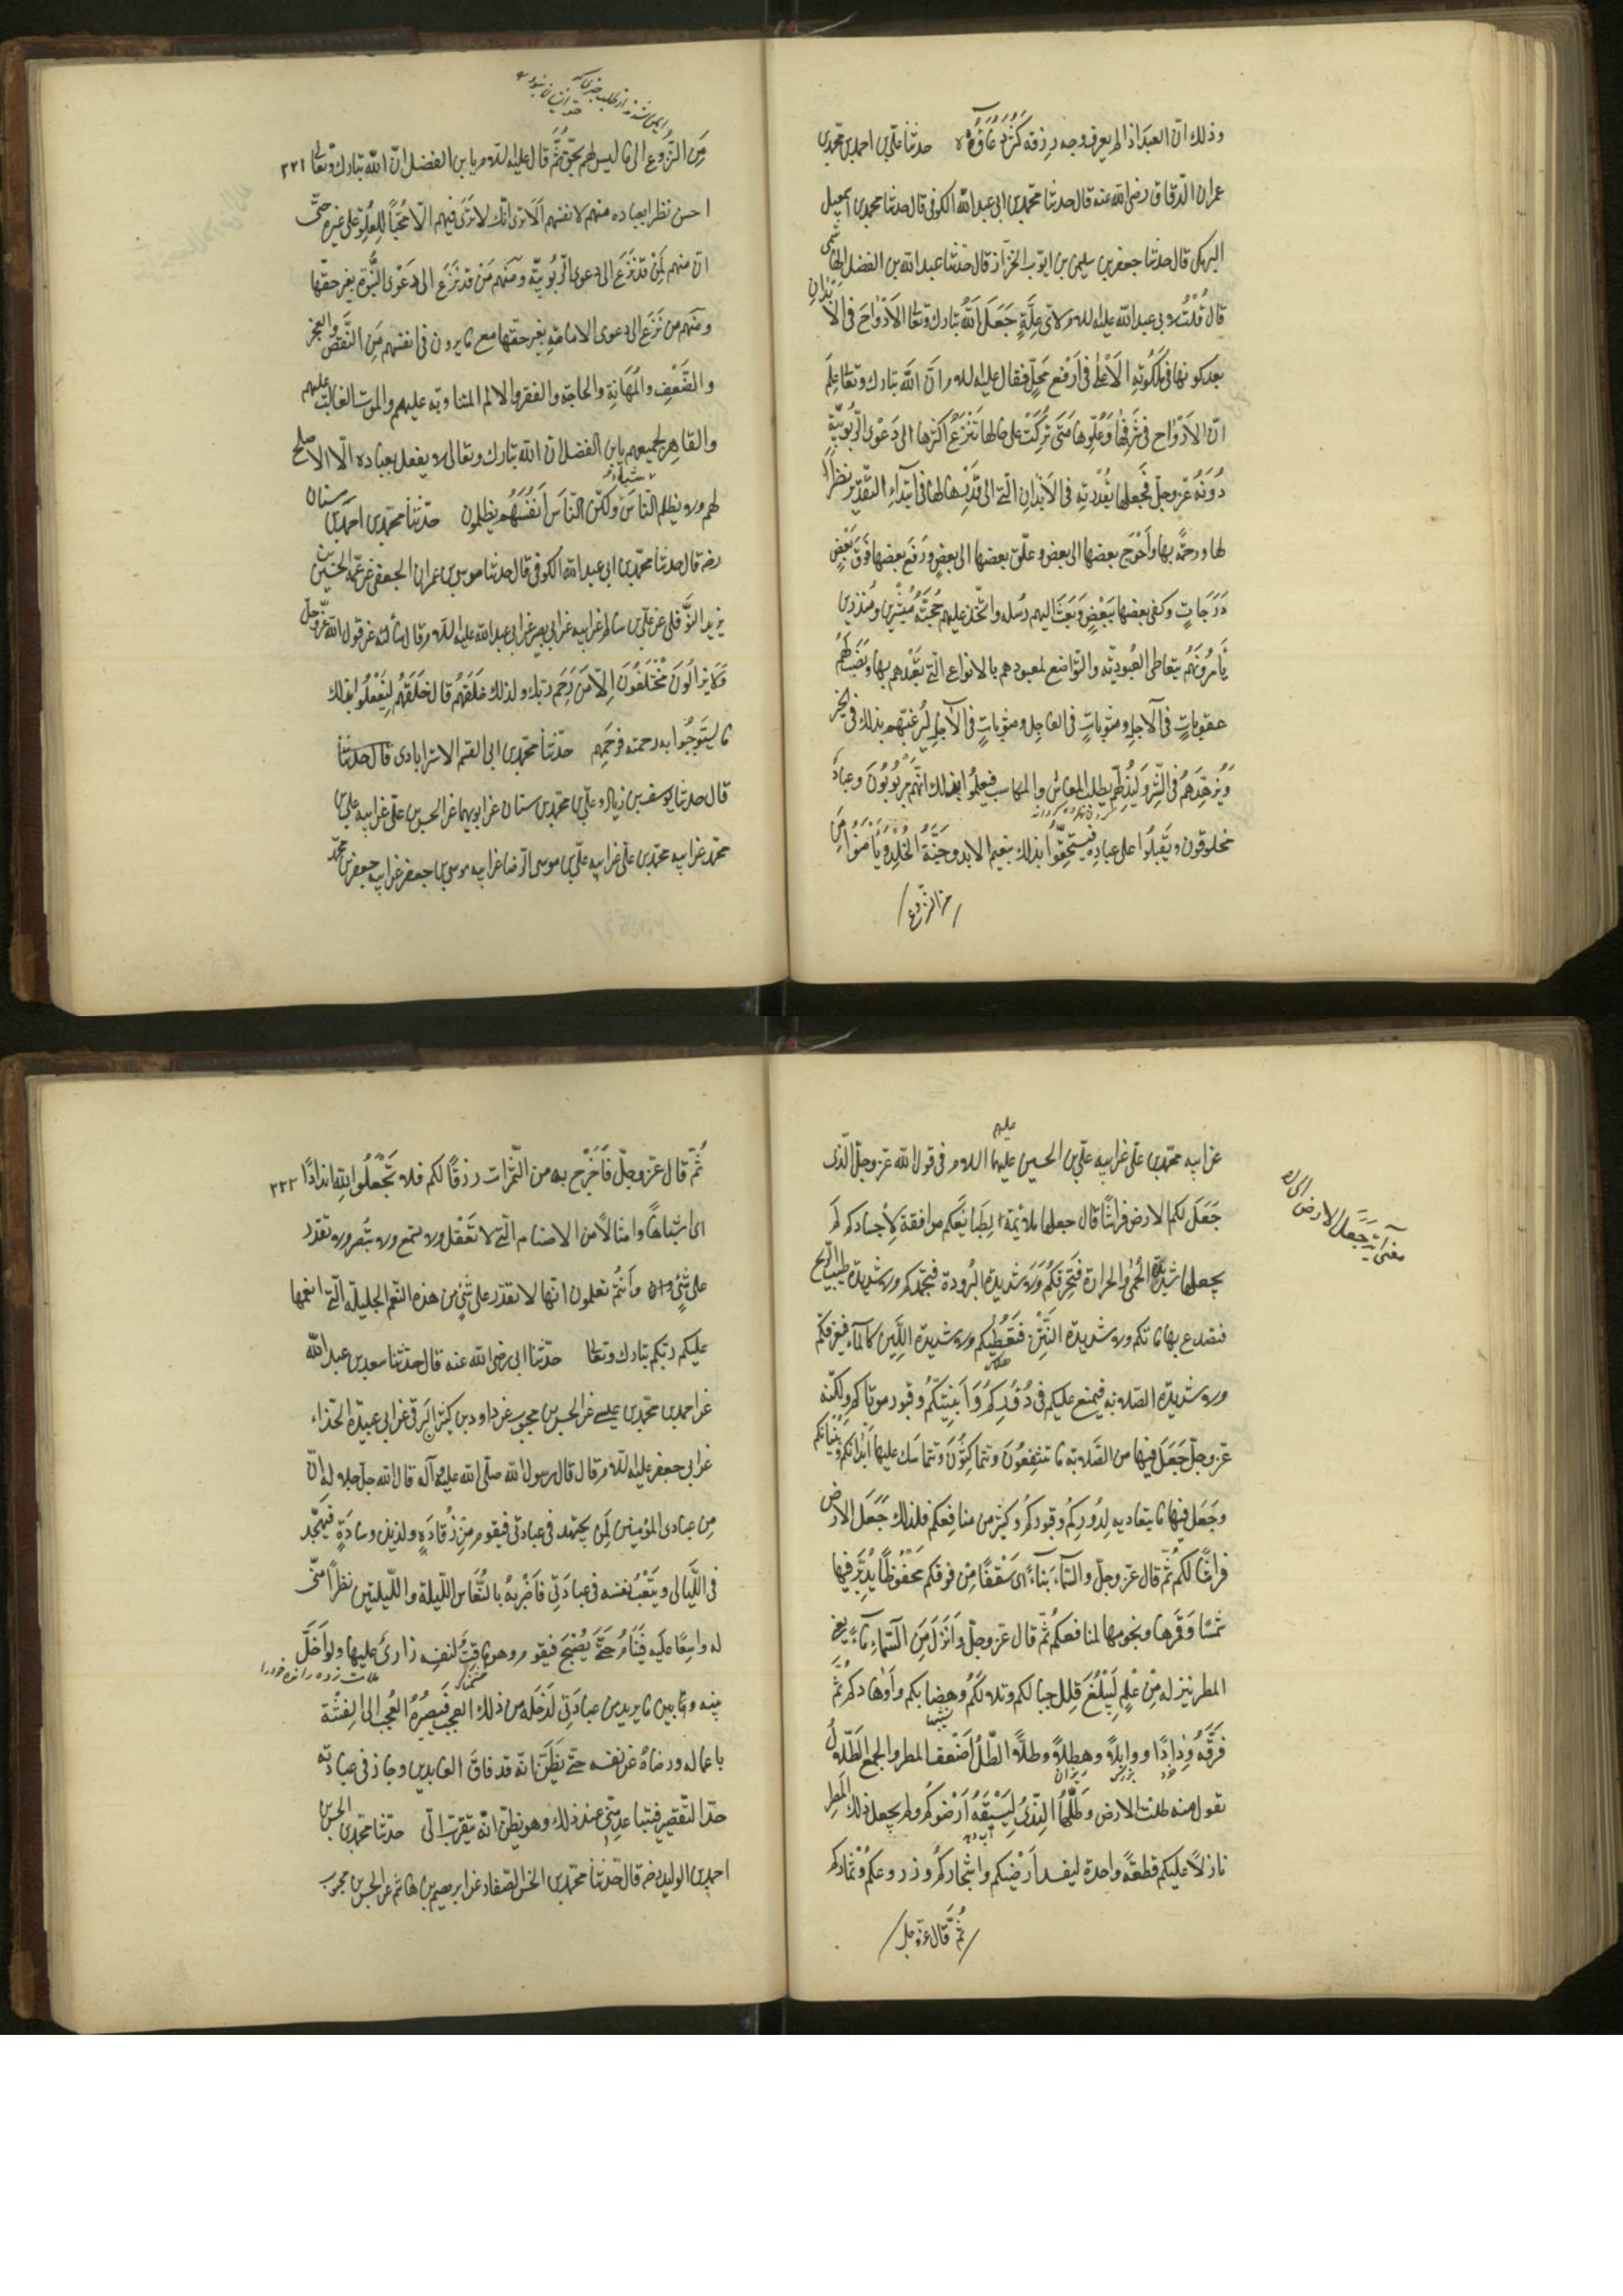 وذلك انّ العبد اذا لم يعرف وجه رزقه كَثُرَ دُعَاؤُهُ حدّثنا علىّ بن احمد بن محمّد بن
عمران الدّقاق رضى الله عنه قال حدثنا محمّد بن ابى عبد الله الكوفى قال حدثنا محمد بن اسمعيل
البرمكى قال حدثنا جعفر بن سليمن بن ايّوب الخزّاز قال حدّثنا عبد الله بن الفضل الهاشمى
قال قُلْتُ لابى عبد الله عليه السلام لاىّ عِلَّةٍ جَعَلَ اللهُ تبارك وتعالى الاَرْوَاحَ فى الاَبْدَانِ
بعد كونها فى مَلَكُوتِهِ الاَعْلى فى اَرْفَعِ مَحَلٍّ فقال عليه السلام انّ الله تبارك وتعالى عَلِمَ
انّ الاَرْوَاح فى شَرَفِهَا وَعُلُوِّهَا مَتى تُرِكَتْ على حالها نَزَعَ اكثرها الى دَعْوى الرّبُوبِيَّةِ
دُوْنَهُ عزّ وجلّ فَجَعلها بقُدْرَتِهِ فى الاَبْدانِ الّتى قَدَّرها لها فى ابْتِدَاءِ التّقدِيْر نظراً
لها ورحمةً بها وَاَحْوَجَ بعضها الى بعض وعلّق بعضها الى بعضٍ ورَفَعَ بعضها فَوْقَ بَعْضٍ
دَرَجَاتٍ وكفى بعضها بِبَعْضٍ وَبَعَثَ اليهم رُسُله واتّخذ عليهم حُجَجَهُ مُبَشِّرِين ومُنْذِرين
يَأمُرُوْنَهُمْ بتعاطى العُبوديّةِ والتّواضع لمعبودهم بالانواع الّتى تَعَبَّدهم بها ونَصَبَ لهُمْ
عقوباتٍ فى الآجل ومثوباتٍ فى العاجِل ومثوباتٍ فى الآجلِ ليُرَغِّبَهم بذلك فى الخير
وَيُزَهِّدَهُمْ فى الشّر وَليُذِلَّهم بطلب المعاش والمكاسب فيعلمُوا بذلك انّهم مَرْبُوبُونَ وعبادٌ
مخلوقون ويُقبِلُوا على عبادتِهِ فيستحقُّوا بذلك نعيم الابد وجَنّةَ الخُلْدِ ويَأمَنُوا مِنَ
من النّزوع
ايمن شدند از طلب چيزى كه
حق ايشان نبود
٢٢١
مِنَ النّزُوع الى ما ليس لهم بحقّ ثُمَّ قال عليه السلام يا بن الفضل انّ الله تبارك وتعالى
احسن نظراً بعباده منهم لانفسهم اَلا ترى انّك لا تَرَى فيهم الّا مُحِبّاً لِلعُلُوِّ على غيره حتّى
انّ منهم لَمَنْ قد نَزَعَ الى دعوى الرّبُوبِيّة ومنهم مَنْ قد نَزَعَ الى دَعْوى النُّبُوّة بغير حقّها
ومنهم من نَزَعَ الى دعوى الامامةِ بغير حقّها مع ما يرون فى انفسهم مِن النَّقْصِ والعجز
والضَّعْفِ والمَهَانةِ والحاجة والفقر والالم المتناوبة عليهم والموت الغالب عليهم
والقاهر لجميعهم يا بن الفضل انّ الله تبارك وتعالى لا يفعل بعباده الّا الاصلح
لهم ولا يظلم النّاسَ شَيْئًا ولكنّ النّاسَ اَنفُسَهُم يظلمون حدّثنا محمّد بن احمد بن سنان
رضه قال حدثنا محمّد بن ابى عبد الله الكوفى قال حدثنا موسى بن عمران الجعفى عن عمّه الحسَيْن بن
يزيد النَّوفلى عن علىّ بن سالم عن ابيه عن ابى بصير عن ابى عبد الله عليه السّلام قال سألته عن قول الله عزّ وجلّ
وَلا يَزالُونَ مُخْتَلِفُونَ اِلاّ مَن رَحِمَ ربّك ولذلك خلقهُم قال خَلَقَهُم لِيَفْعَلُوا بذلك
ما ليستَوجِبُوا به رحمته فرحَمهم حدّثنا محمّد بن ابى القسم الاسترابادى قال حدّثنا
قال حدثنا يوسف بن زياد وعلىّ بن محمّد بن سنان عن ابويهما عن الحسن بن علىّ عن ابيه على بن
محمّد عن ابيه محمّد بن علىّ عن ابيه علىّ بن موسى الرّضا عن ابيه موسى بن جعفر عن ابيه جعفر بن محمّد
معنى آيت جَعَلَ الارض الى آخره
عن ابيه محمّد بن علىّ عن ابيه علىّ بن الحسين عليهم السلام فى قول الله عزّ وجلّ الّذى
جَعَلَ لكم الارض فراشًا قال جعلها ملائمةً لِطَبائِعكم موافقة لاَجسادكم لم
يجعلها شديدة الحُمْى والحرارة فتَحرِقَكُم وَلا شديدة البُرودة فتجمدكم ولا شديدة طيب الرّيح
فتصدع بها ماتكم ولا شديدة النّتْن فتُعْطِبكم ولا شديدة اللّين كالماء فيغرقكم
ولا شديدة الصّلابة فيمتنع عليكم فى دُوْرِكمْ وَاَبنِيَتكُمْ وقبور موتاكم ولكنّه
عزّ وجلّ جَعَلَ فيها من الصّلابة ما تنتفِعُونَ وتتماسكُوْنَ وتتماسَك عليها اَبْدَانكُم وَبُنْيَانكم
وجَعَلَ فيها ما ينقاد به لِدُوركُم وقبوركم وكثير من منافِعكم فلذلك جَعَلَ الارض
فراشًا لكم ثُمّ قال عزّ وجلّ والسّماء بناءً اى سَقْفًا مِن فوقكم مَحْفُوظًا يُدَيِّر فيها
شمسًا وَقَمَرها ونجومها لمنافعكُم ثُمّ قال عزّ وجلّ وَاَنْزَلَ مِنَ السّماء ماءً يعنى
المطر نيزله مِنْ عُلٍ لِيَبْلُغَ قلل جبالكم وتلالكُمْ وهِضابكم وَاَوهادكُم ثُمَّ
فَرّقَهُ رَذاذًا ووابِلاً وهطلاً وطلاّ الطّلّ اَضعَف المطر والجمع الطّلول
تقول منه طلت الارض وطلّها النّدى لِيَسْقِيَهُ اَرْضوكم ولم يجعل ذلك المطر
نازلاً عليكم قطعةً واحدة ليفسد اَرَضيكم واشجاركُم وزروعكُم وثماركم
ثُمَّ قال عزّ وجل
٢٢٢
ثُمّ قال عزّ وجلّ فَاَخْرَجَ به من الثّمرات رزقًا لكم فلا تَجْعَلُوا لِلّهِ اندادًا
اى اشباهًا وامثالاً من الاصنام الّتى لا تَعْقل ولا تسمع ولا تُبصر ولا تقدر
على شَىْءٍ واَنْتُم تعلمون انّها لا تقدر على شَىْءٍ من هذه النّعم الجليلة الّتى انعمها
عليكم ربّكم تبارك وتعالى حدّثنا ابى رضى الله عنه قال حدّثنا سعد بن عبد الله
عن احمد بن محمّد بن عيسى عن الحسن بن محبوب عن داود بن كثير الرقى عن ابى عبيدة الحذّاء
عن ابى جعفر عليه السّلام قال قال رسول الله صلّى الله عليه وآله قال الله جلّ جلاله اِنّ
مِن عبادى المؤمنين لَمن يجتهد فى عبادتى فيقوم مِن رُقادِهِ ولذيذ وسادَةٍ فَيَتَهجّد
فى اللّيالى ويُتْعِبُ نفسه فى عبادَتِى فاَضْرِبهُ بالنُّعَاس اللّيلة واللّيلتين نظرًا منّى
له وابقاءً عليه فَيَنَامُ حتّى يُصْبحَ فيقوم وهو ماقتٌ لنفسه زارئ عليها ولو اُخَلّى
بينه وما بين ما يريد من عبادَتِى لَدَخَله من ذلك العجب فَيصيّرهُ العُجب الى الفِتْنة
باعماله ورضاهُ عن نفسه حتّى يَظُنّ انّه قد فاقَ العابدين وجاز فى عبادته
حدّ التّقصير فيتباعد مِنّى عند ذلك وهو يظنّ انّه يتقرّب الىّ حدّثنا محمّد بن الحسن بن
احمد بن الوليد رضه قال حدّثنا محمّد بن الحسن الصّفار عن ابرهيم بن هاشم عن الحسن بن محبوب